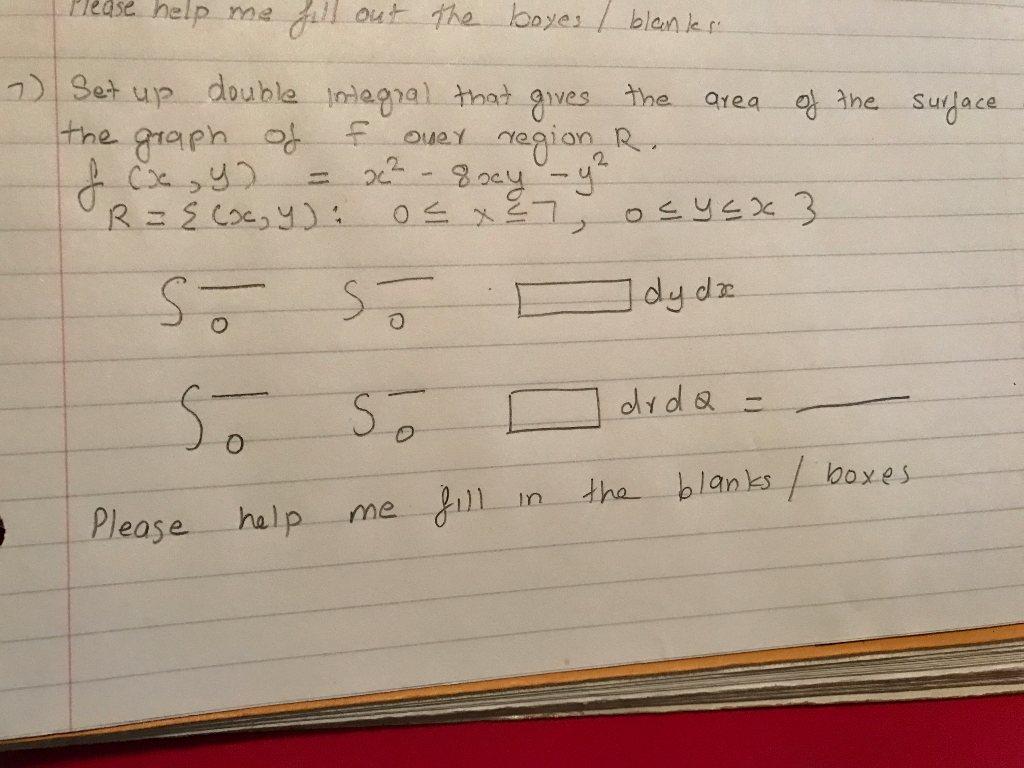 Please help me fill out the boxes / blanks.
7) Set up double integral that gives the area of the surface
the graph of f over region R.
f (x, y) = x² - 8xy - y²
R = { (x, y) : 0 ≤ x ≤ 7, 0 ≤ y ≤ x }
∫₀‾ ∫₀‾ □ dy dx
∫₀‾ ∫₀‾ □ dr dθ = __
Please help me fill in the blanks / boxes